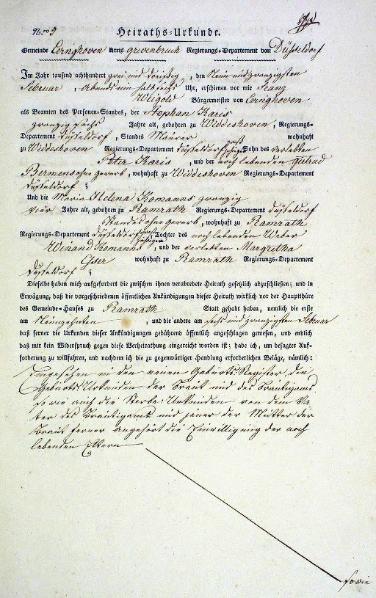 Nro 9 Heiraths-Urkunde.
Gemeinde Evinghoven Kreis Grevenbroich Regierungs-Departement von Düsseldorf
Im Jahr tausend achthundert zwei und dreißig, den neun und zwanzigsten
Februar, Abends um halb sechs Uhr, erschienen vor mir Franz
Weigold Bürgermeister von Evinghoven
als Beamten des Personen-Standes, der Stephan Karis
zwanzig sechs Jahre alt, gebohren zu Widdeshoven, Regierungs-
Departement Düsseldorf, Standes Maurer wohnhaft
zu Widdeshoven Regierungs-Departement Düsseldorf Sohn des verlebten
Peter Karis, und der noch lebenden
wohnhaft zu Widdeshoven Regierungs-Departement
Düsseldorf
Und die Maria Helena Komanns zwanzig
vier Jahre alt, gebohren zu Ramrath Regierungs-Departement Düsseldorf
Standes ohne Gewerb, wohnhaft zu Ramrath
Regierungs-Departement Düsseldorf Tochter des noch lebenden Weber
Winand Komanns, und der verlebten Margretha
wohnhaft zu Ramrath Regierungs-Departement
Düsseldorf
Dieselben haben mich aufgefordert die zwischen ihnen verabredete Heirath gesetzlich abzuschließen; und in
Erwägung, daß die vorgeschriebenen öffentlichen Ankündigungen dieser Heirath wirklich vor der Hauptthüre
des Gemeinde-Hauses zu Ramrath Statt gehabt haben, nemlich die erste
am und die andere am Februar
daß ferner die Urkunden dieser Ankündigungen gehöhrend öffentlich angeschlagen gewesen, und endlich
daß mir kein Widerspruch gegen diese Verheirathung eingereicht worden ist; habe ich, um besagter Auf-
forderung zu willfahren, und nachdem ich die zu gegenwärtiger Handlung erforderlichen Beläge, nämlich:
Eingesehen in den neuen Geburts-Register die
Geburts Urkunden der Braut und des Bräutigams
sowie auch die Sterbe-Urkunden von dem Va-
ter des Bräutigams und jener der Mutter der
Braut ferner angehört die Einwilligung der noch
lebenden Eltern
sowie